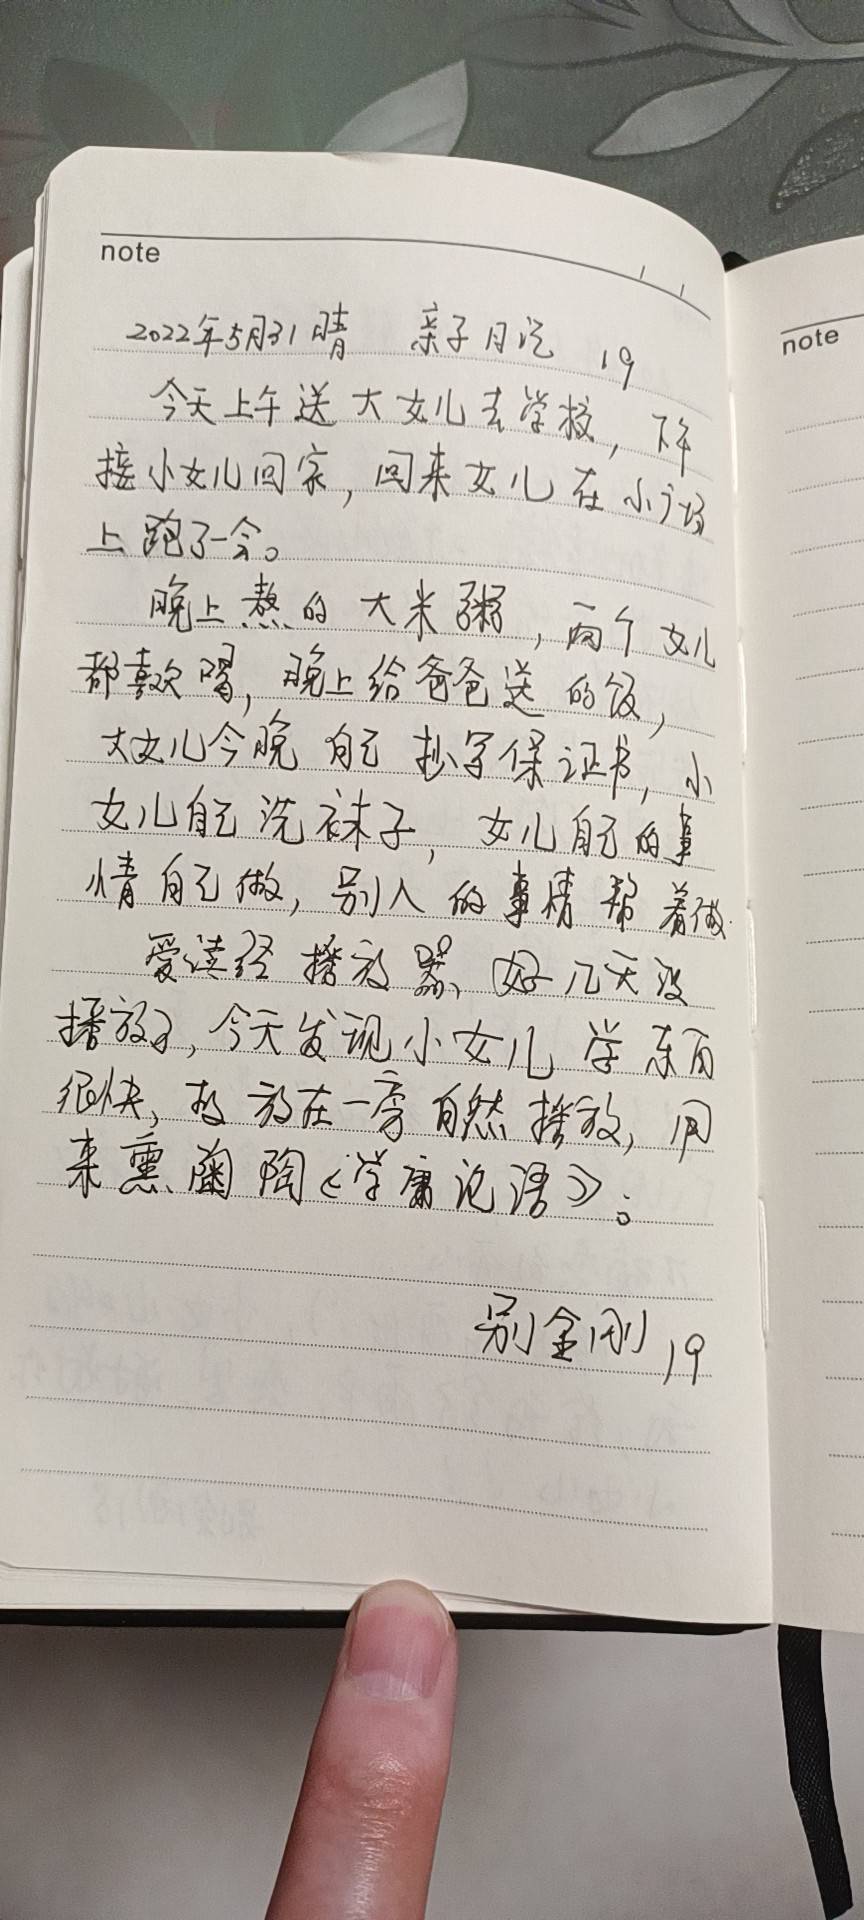 note
2022年5月31 晴 亲子日记 19
今天上午送大女儿去学校，下午
接小女儿回家，回来女儿在小广场
上跑了一会。
晚上熬的大米粥，两个女儿
都喜欢喝，晚上给爸爸送的饭，
大女儿今晚自己抄写保证书，小
女儿自己洗袜子，女儿自己的事
情自己做，别人的事情帮着做.
爱读经播放器、好几天没
播放了，今天发现小女儿学东西
很快，故放在一旁自然播放，用
来熏陶《学庸论语》。
别金刚 19
note